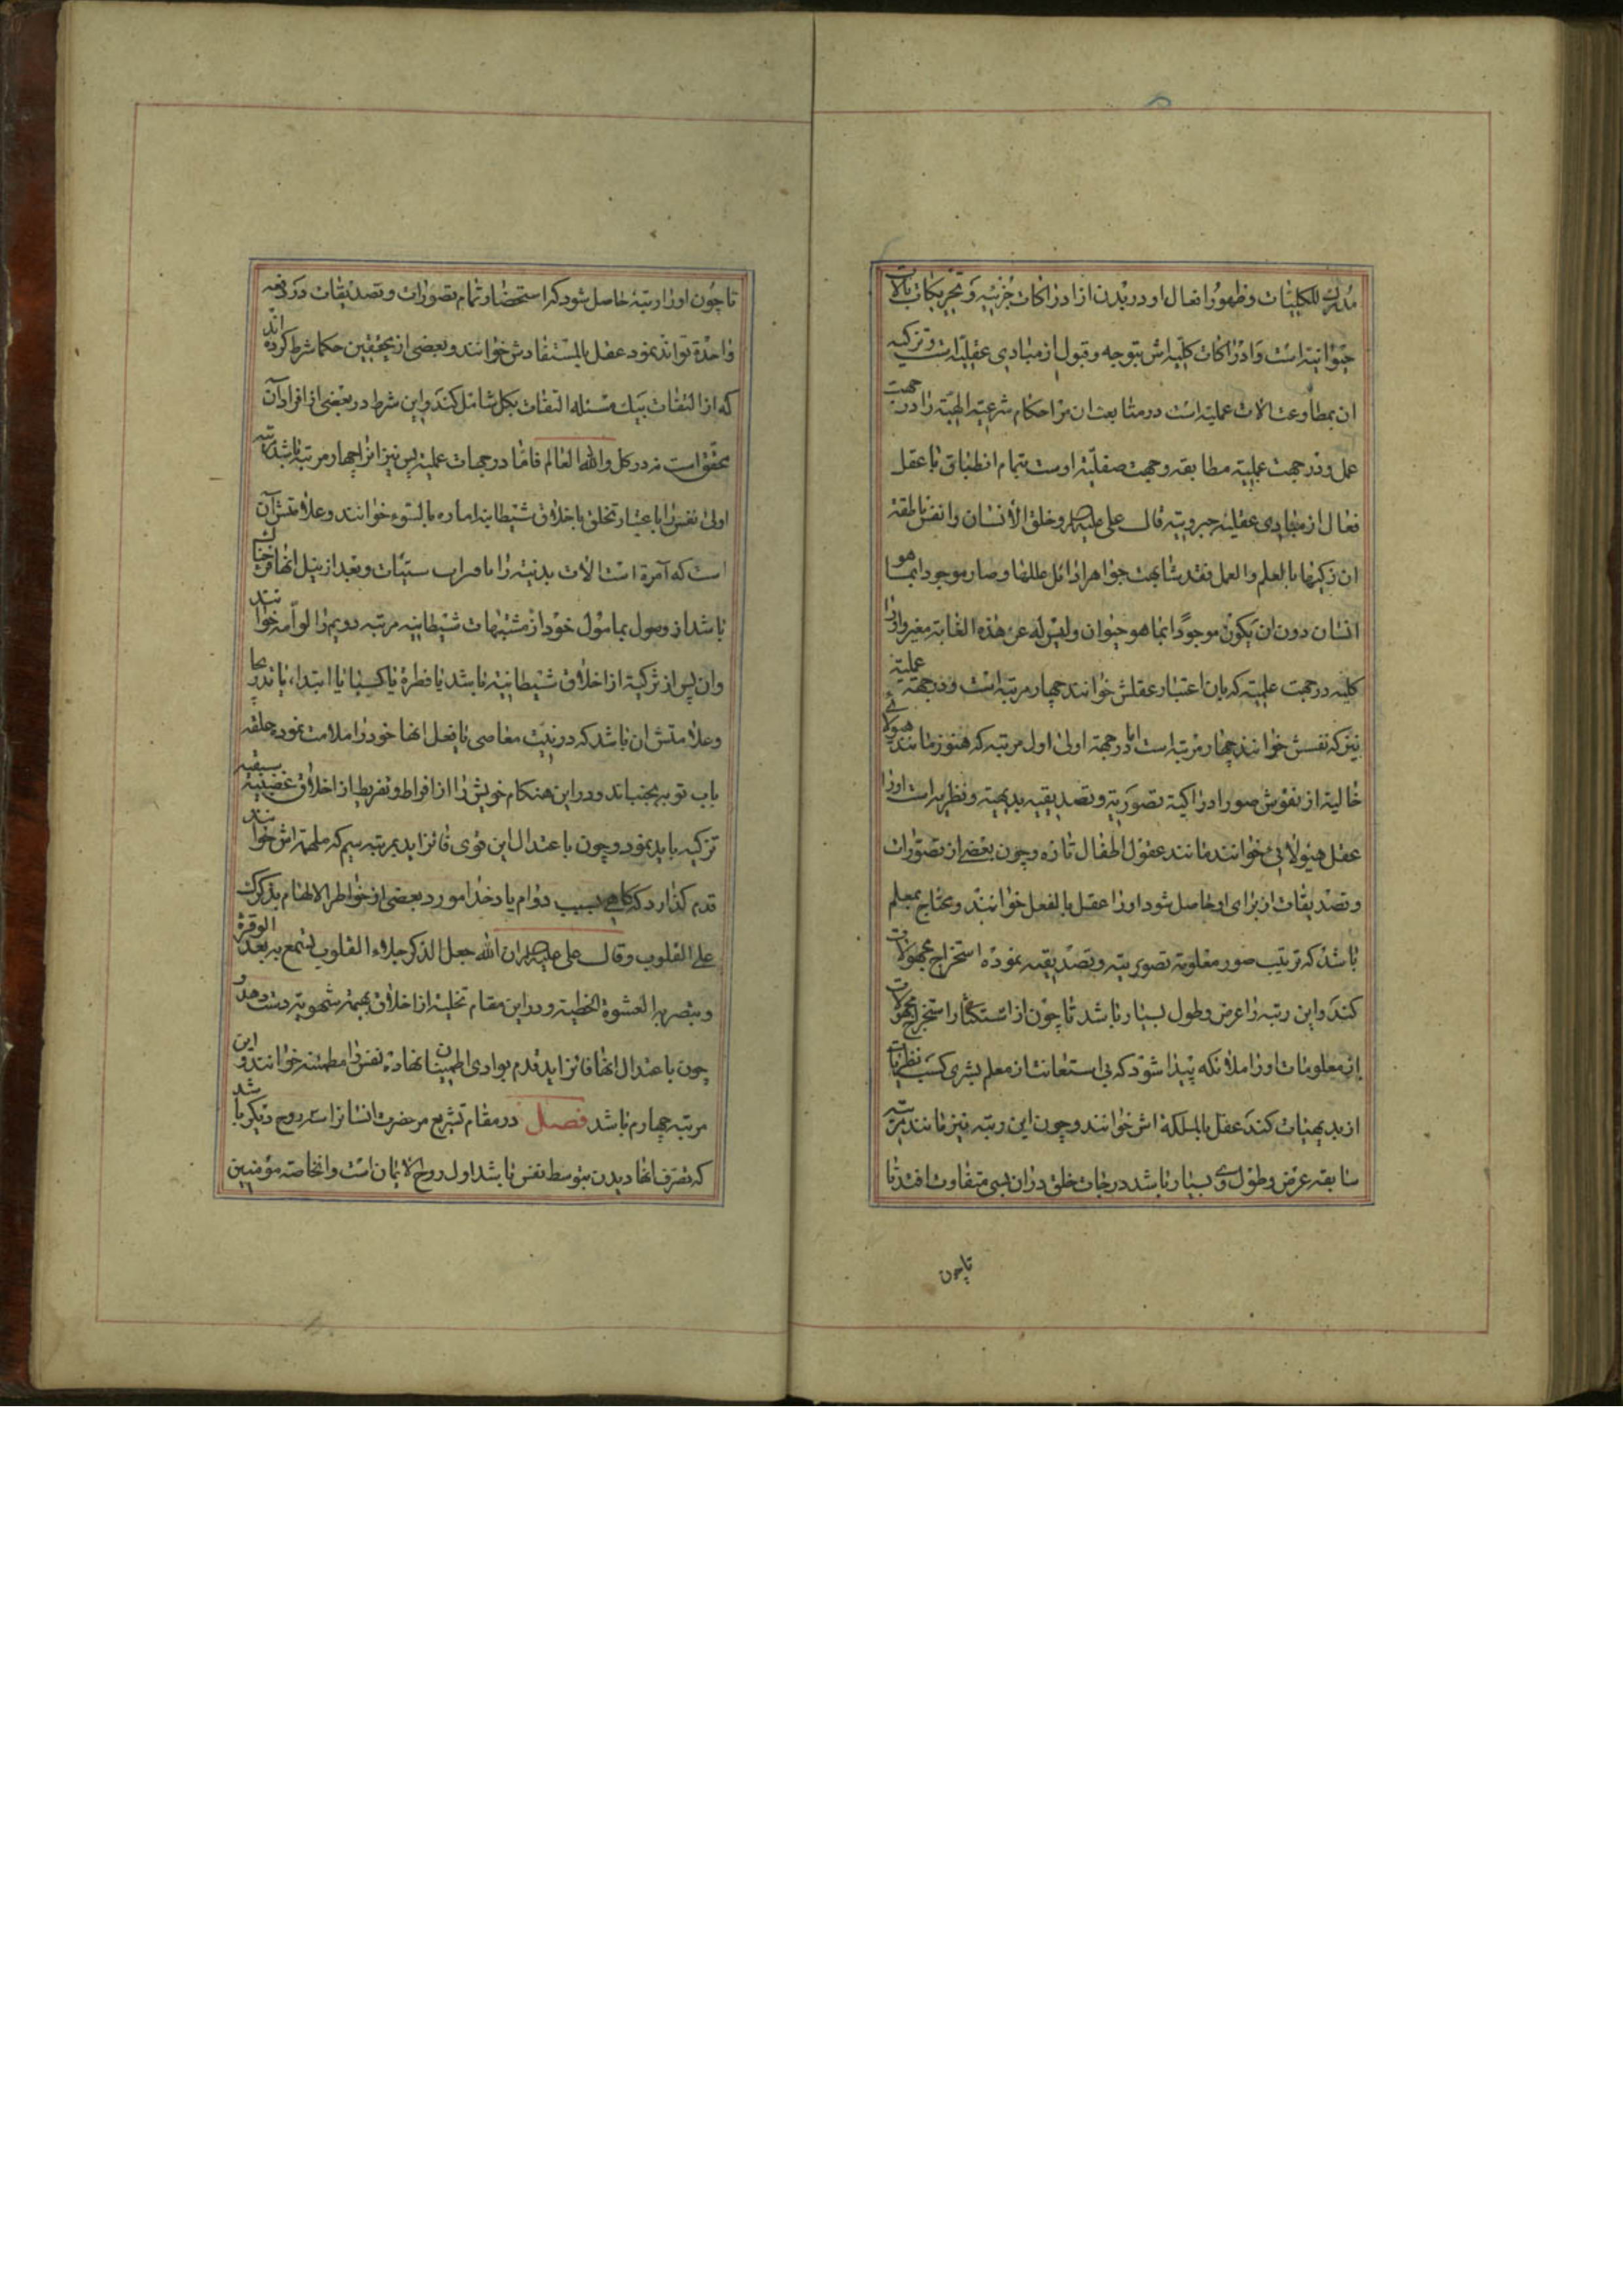 مُدرک للکلیّات و ظهور افعال او در بدن از ادراکات جزئیه و تحریکات بالات
حیوانیه است و ادراکات کلیه‌اش بتوجه و قبول از مبادی عقلیه است و تزکیه
ان بمطاوعت الات عملیه است در متابعت ان مر احکام شرعیه الهیه را در جهت
عمل و در جهت عملیه مطابقه و جهت صقلیه اوست بتمام انطباق با عقل
فعال از مبادی عقلیه جبروتیه قال علی علیه السلام و خلق الانسان ذا نفس ناطقة
ان زکیها بالعلم و العمل فقد شابهت جواهر اوائل عللها و صار موجودا بما هو
انسان دون ان یکون موجودًا بما هو حیوان و لیس له عن هذه الغایة مغیر و اورا
کلیه در جهت علمیه که بان اعتبار عقلش خوانند چهار مرتبه است و در جهة عملیه
نیز که نفسش خوانند چهار مرتبه است اما در جهة اولی اول مرتبه که هنوز مانند هیولای
خالیة از نقوش صور ادراکیة تصوریة و تصدیقیه بدیهیة و نظریه است اورا
عقل هیولائی خوانند مانند عقول اطفال تازه و چون بعضی از تصورات
و تصدیقات از برای او حاصل شود اورا عقل بالفعل خوانند و محتاج بمعلم
باشد که ترتیب صور معلومة تصوریة و تصدیقیه نموده استخراج مجهولات
کند و این رتبه را عرض و طول بسیار باشد تا چون از استکثار استخراج مجهولات
از معلومات اورا ملکه پیدا شود که بی استعانت از معلم بشری کسب نظریات
از بدیهیات کند عقل بالملکة اش خوانند و چون این رتبه نیز مانند مرتبه
سابقه عرض و طول وی بسیار باشد درجات خلق در ان بسی متفاوت افتد تا
تا چون
تا چون اورا رتبهٔ حاصل شود که استحضار تمام تصورات و تصدیقات در دفعه
واحدة تواند نمود عقل بالمستفادش خوانند و بعضی از محققین حکما شرط کرده اند
که از التفات بیک مسئله التفات بکل شامل کند و این شرط در بعضی از افراد آن
محقق است نه در کل و الله العالم فاما در جهات عملیه پس نیز انرا چهار مرتبه باشد رتبه
اولی نفس را باعتبار تخلق باخلاق شیطانیه امارة بالسوء خوانند و علامتش آن
است که آمرة است الات بدنیه را باقتراب سیئات و بعد از نیل انها فرحناک
باشد از وصول بمامول خود از مشتهیات شیطانیه مرتبه دویم را لوامه خوانند
و ان پس از تزکیة از اخلاق شیطانیة باشد یا فطرة یا کسبا یا ابتداء یا بتدریجا
و علامتش ان باشد که در نیت معاصی یا فعل انها خود را ملامت نموده حلقه
باب توبه بجنباند و در این هنکام خویش را از افراط و تفریط از اخلاق غضبیه سبعیه
تزکیه باید نمود و چون باعتدال این قوی فائز اید بمرتبه سیم که ملهمه اش خوانند
قدم کذارد که کاهی بسبب دوام یاد خدا مورد بعضی از خواطر الالهام بذکرک
علی القلوب و قال علی علیه السلام ان الله جعل الذکر جلاء القلوب تسمع به بعد الوقرة
و تبصر به العشوة الخطیئة و در این مقام تخلیه از اخلاق بهیمة شهویة دست دهد و
چون باعتدال انها فائز اید قدم بوادی اطمینان نهاده نفس را مطمئنه خوانند و این
مرتبه چهارم باشد فصل در مقام تشریع مر حضرت انسانرا سه روح دیکر باشد
که تصرف انها در بدن بتوسط نفس باشد اول روح الایمان است و انخاصه مؤمنین